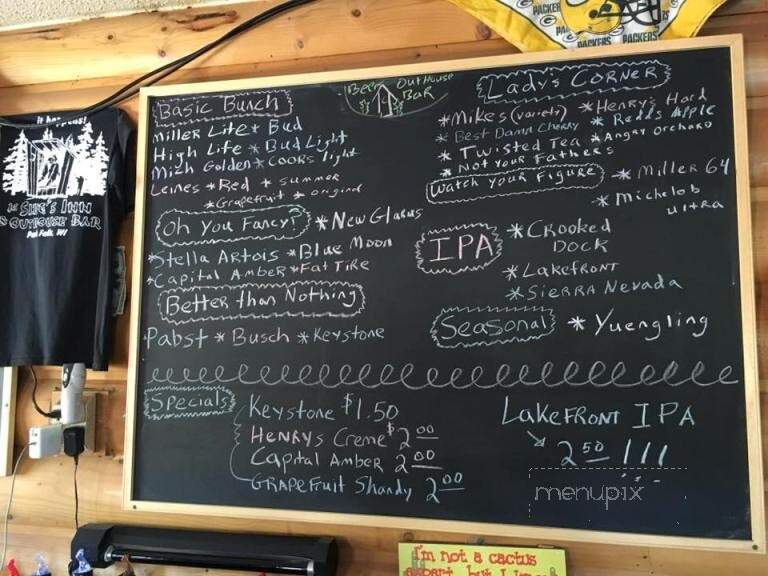 PACKERS
PACKERS PACKERS
it happens!
SHE'S INN
OUTHOUSE BAR
Beer OutHouse
BaR
Basic Bunch
Miller Lite + Bud
High Life * Bud Light
Mich Golden * Coors light
Leines * Red * Summer
*Grapefruit * original
Oh You Fancy? * New Glarus
*Stella Artois *Blue Moon
*Capital Amber *Fat Tire
Better than Nothing
Pabst * Busch * Keystone
Lady's Corner
*Mikes (variety) *Henry's Hard
*Best Damn Cherry * Redds Apple
* Twisted Tea *Angry orchard
* Not Your Fathers
Watch your Figure * Miller 64
* Michelob
ultra
IPA * CROOKED
DOCK
* LakeFRONT
* SieRRA Nevada
Seasonal * Yuengling
Specials
Keystone $1.50
HENRYS Creme $2.00
Capital Amber 2.00
GRAPEFruit Shandy 2.00
LakeFRONT IPA
2.50 !!!
menupix
I'm not a cactus
expert, but I know